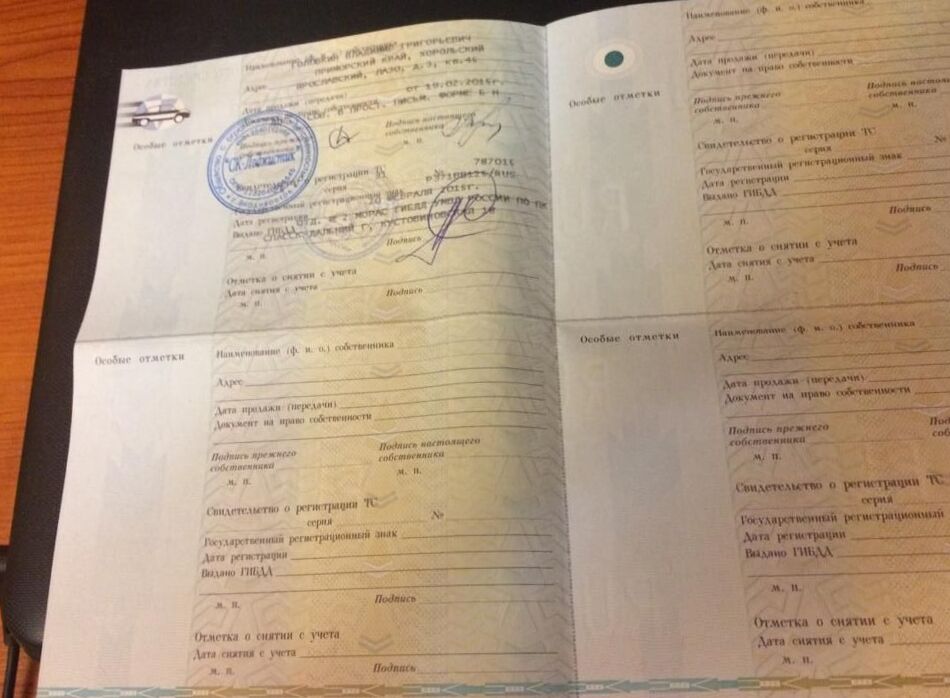 Наименование (ф. и. о.) собственника
ГОЛОВКИН ВЛАДИМИР ГРИГОРЬЕВИЧ
ПРИМОРСКИЙ КРАЙ, ХОРОЛЬСКИЙ
Адрес
ЯРОСЛАВСКИЙ, ЛАЗО, Д.3, КВ.46
Дата продажи (передачи)
от 19.02.2016г.
В ПРОСТ. ПИСЬМ. ФОРМЕ Б Н
Особые отметки
Подпись настоящего
собственника
м. п.
787016
регистрации ТС
серия
20 ФЕВРАЛЯ 2016г.
Дата регистрации
Выдано ГИБДД
ОТД. № 2 МОРАС ГИБДД УМВД РОССИИ ПО ПК
СПАССК-ДАЛЬНИЙ Г,
м. п.
Подпись
Отметка о снятии с учета
Дата снятия с учета
м. п.
Подпись
Особые отметки
Наименование (ф. и. о.) собственника
Адрес
Дата продажи (передачи)
Документ на право собственности
Подпись прежнего
собственника
м. п.
Подпись настоящего
собственника
м. п.
Свидетельство о регистрации ТС
серия
№
Государственный регистрационный знак
Дата регистрации
Выдано ГИБДД
м. п.
Подпись
Отметка о снятии с учета
Дата снятия с учета
м. п.
Подпись
Наименование (ф. и. о.) собственника
Адрес
Дата продажи (передачи)
Документ на право собственности
Особые отметки
Подпись прежнего
собственника
м. п.
Подпись настоящего
собственника
м. п.
Свидетельство о регистрации ТС
серия
№
Государственный регистрационный знак
Дата регистрации
Выдано ГИБДД
м. п.
Подпись
Отметка о снятии с учета
Дата снятия с учета
м. п.
Подпись
Особые отметки
Наименование (ф. и. о.) собственника
Адрес
Дата продажи (передачи)
Документ на право собственности
Подпись прежнего
собственника
м. п.
Свидетельство о регистрации ТС
серия
Государственный регистрационный
Дата регистрации
Выдано ГИБДД
м. п.
Отметка о снятии с учета
Дата снятия с учета
м. п.